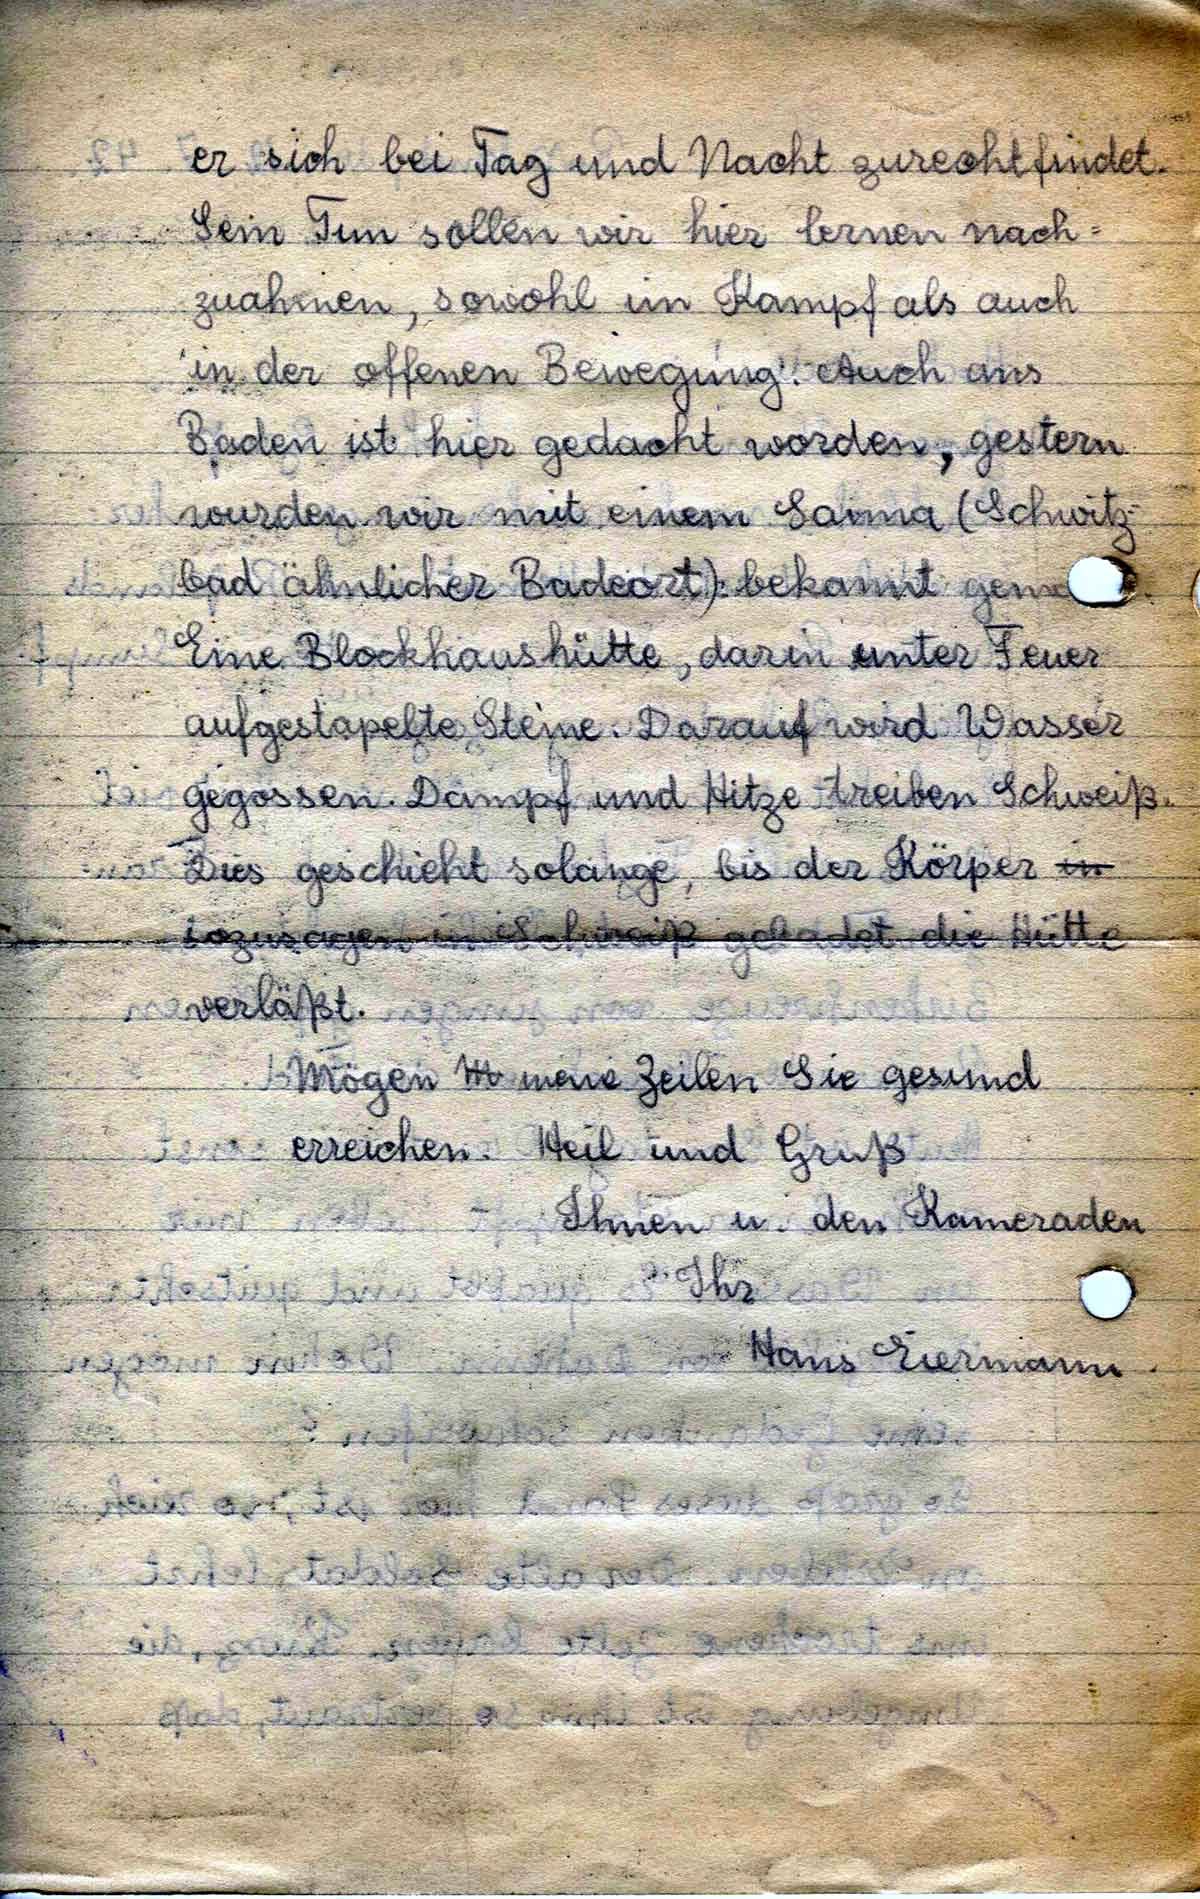 er sich bei Tag und Nacht zurechtfindet.
Sein Tun sollen wir hier lernen nach=
zuahmen, sowohl im Kampf als auch
in der offenen Bewegung. Auch ans
Baden ist hier gedacht worden, gestern
wurden wir mit einem Sauna (Schwitz-
bad ähnlicher Badeort) bekannt gema
Eine Blockhaushütte, darin unter Feuer
aufgestapelte Steine. Darauf wird Wasser
gegossen. Dampf und Hitze treiben Schweiß.
Dies geschieht solange, bis der Körper in
sozusagen in Schweiß gebadet die Hütte
verläßt.
Mögen M meine Zeilen Sie gesund
erreichen. Heil und Gruß
Ihnen u. den Kameraden
Ihr
Hans Eiermann.